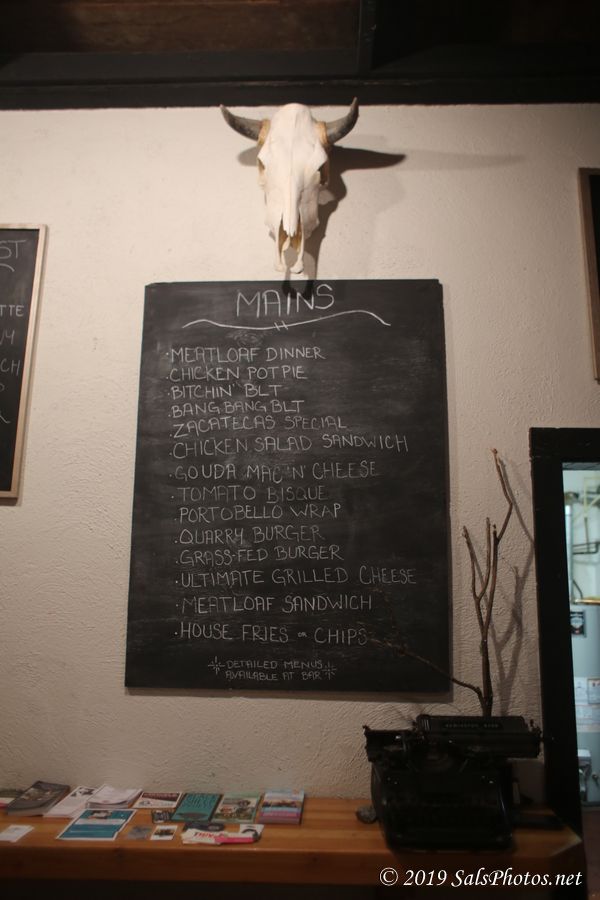 MAINS
· MEATLOAF DINNER
· CHICKEN POT PIE
· BITCHIN' BLT
· BANG BANG BLT
· ZACATECAS SPECIAL
· CHICKEN SALAD SANDWICH
· GOUDA MAC 'N' CHEESE
· TOMATO BISQUE
· PORTOBELLO WRAP
· QUARRY BURGER
· GRASS-FED BURGER
· ULTIMATE GRILLED CHEESE
· MEATLOAF SANDWICH
· HOUSE FRIES OR CHIPS
DETAILED MENUS
AVAILABLE AT BAR
© 2019 SalsPhotos.net